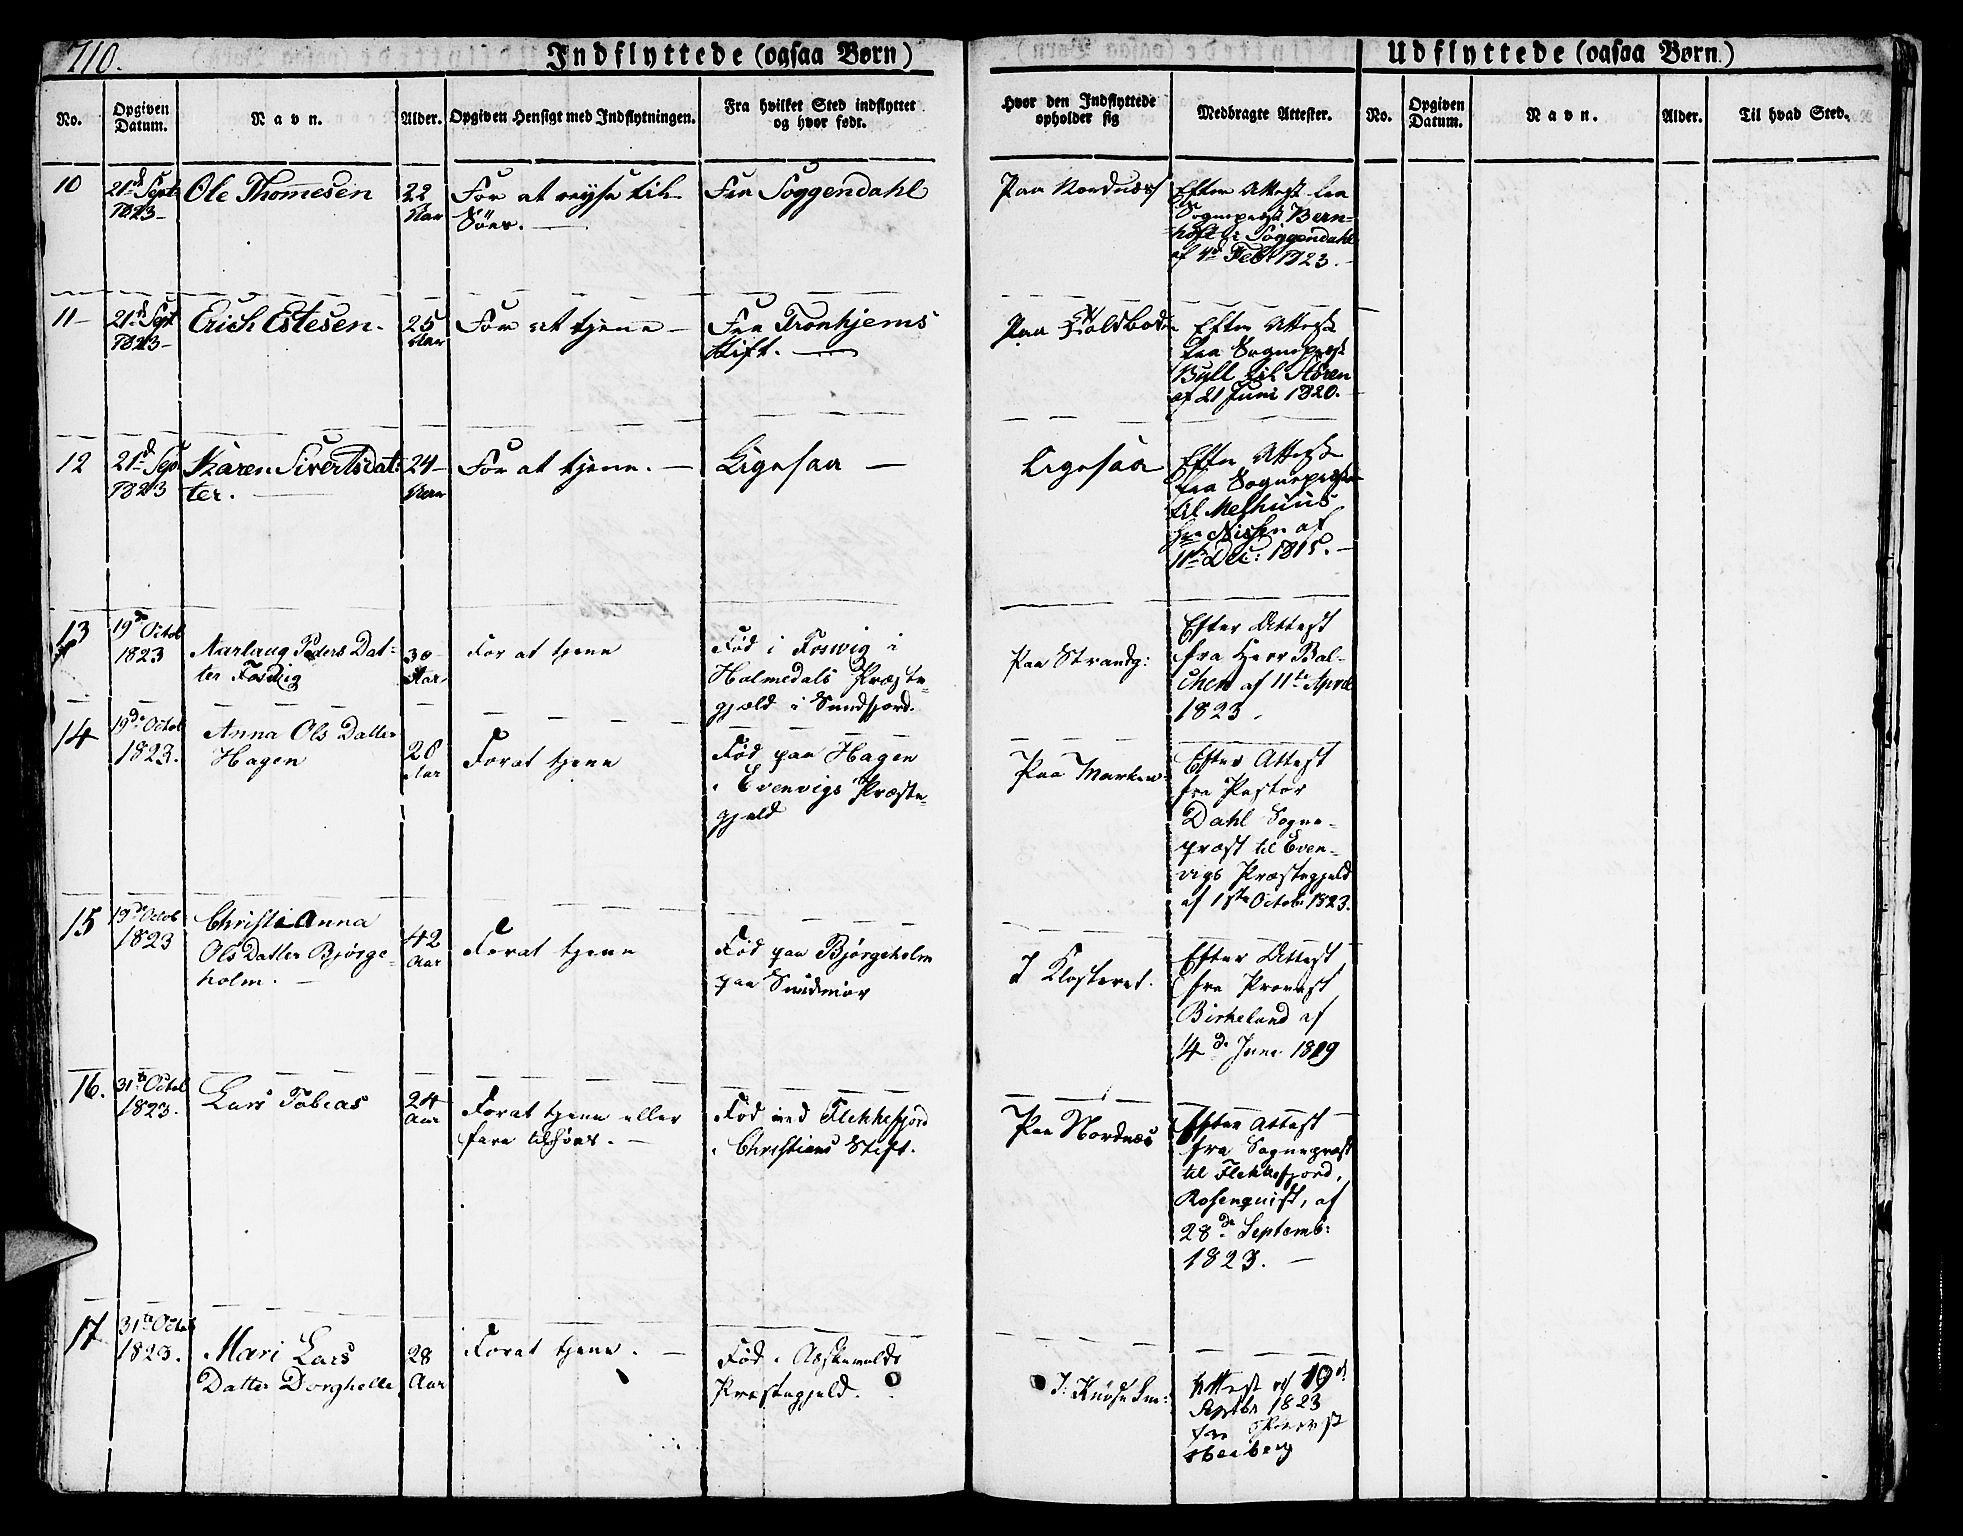 710.
Indflyttede (ogsaa Børn)
Udflyttede (ogsaa Børn.)
No.
Opgiven Datum.
Navn.
Alder.
Opgiven Hensigt med Indflytningen.
Fra hvilket Sted indflyttet og hvor født.
Hvor den Indflyttede opholder sig
Medbragte Attester.
No.
Opgiven Datum.
Navn.
Alder.
Til hvad Sted.
10
21d Sept
1823
Ole Thomesen
22
Aar
For at reyse til
Söes.
Fra Soggendahl
Paa Nordnæs
Efter Attest fra
Sognepræst Bern-
hoft i Soggendahl
af 4d Feb. 1823.
11
21d Sept
1823
Erich Estesen.
25
Aar
For at tjene
Fra Tronhjems
Stift.
Paa
Efter Attest
fra Sognepræst
Bull til Hören
af 21 Juni 1820.
12
21d Sept
1823
Karen Sivertsdat-
ter.
24
Aar
For at tjene.
Ligesaa
Ligesaa
Efter Attest
fra Sognepræst
til Melhuus
Hr. Nissen af
11te Dec: 1815.
13
19de Octob
1823
Aarlaug Peders Dat-
ter Fosvig
30
Aar
For at tjene
Fød i Foswig i
Holmedals Præste-
gjæld i Sundfjord.
Paa Strandg:
Efter Attest
fra Herr Bal-
chen af 11te April
1823.
14
19de Octob
1823.
Anna Ols Datter
Hagen
20
Aar
For at tjene
Fød paa Hagen
i Evenvigs Præste-
gjeld
Paa Marken
Efter Attest
fra Pastor
Dahl Sogne-
præst til Even-
vigs Præstegjeld
af 1ste Octobr 1823.
15
19de Octob
1823
Christianna
Ols Datter Bjørge-
holm.
42
Aar
For at tjene
Fød paa Bjørgeholm
paa Sundmør
I Klosteret.
Efter Attest
fra Provest
Birkeland af
4de Juni 1819
16.
31te Octob
1823.
Lars Tobias
24
Aar
For at tjene eller
fare tilsøes.
Fød ved Flekkefjord
i Christians Stift.
Paa Nordnæs
Efter Attest
fra Sognepræst
til Flekkefjord,
Rosenquist, af
28de Septemb:
1823.
17
31te Octob
1823.
Mari Lars
Datter Dorghelle
28
Aar
For at tjene.
Fød i Askevolds
Præstegjeld.
I
Attest af 19d
Septbr 1823
fra Provst